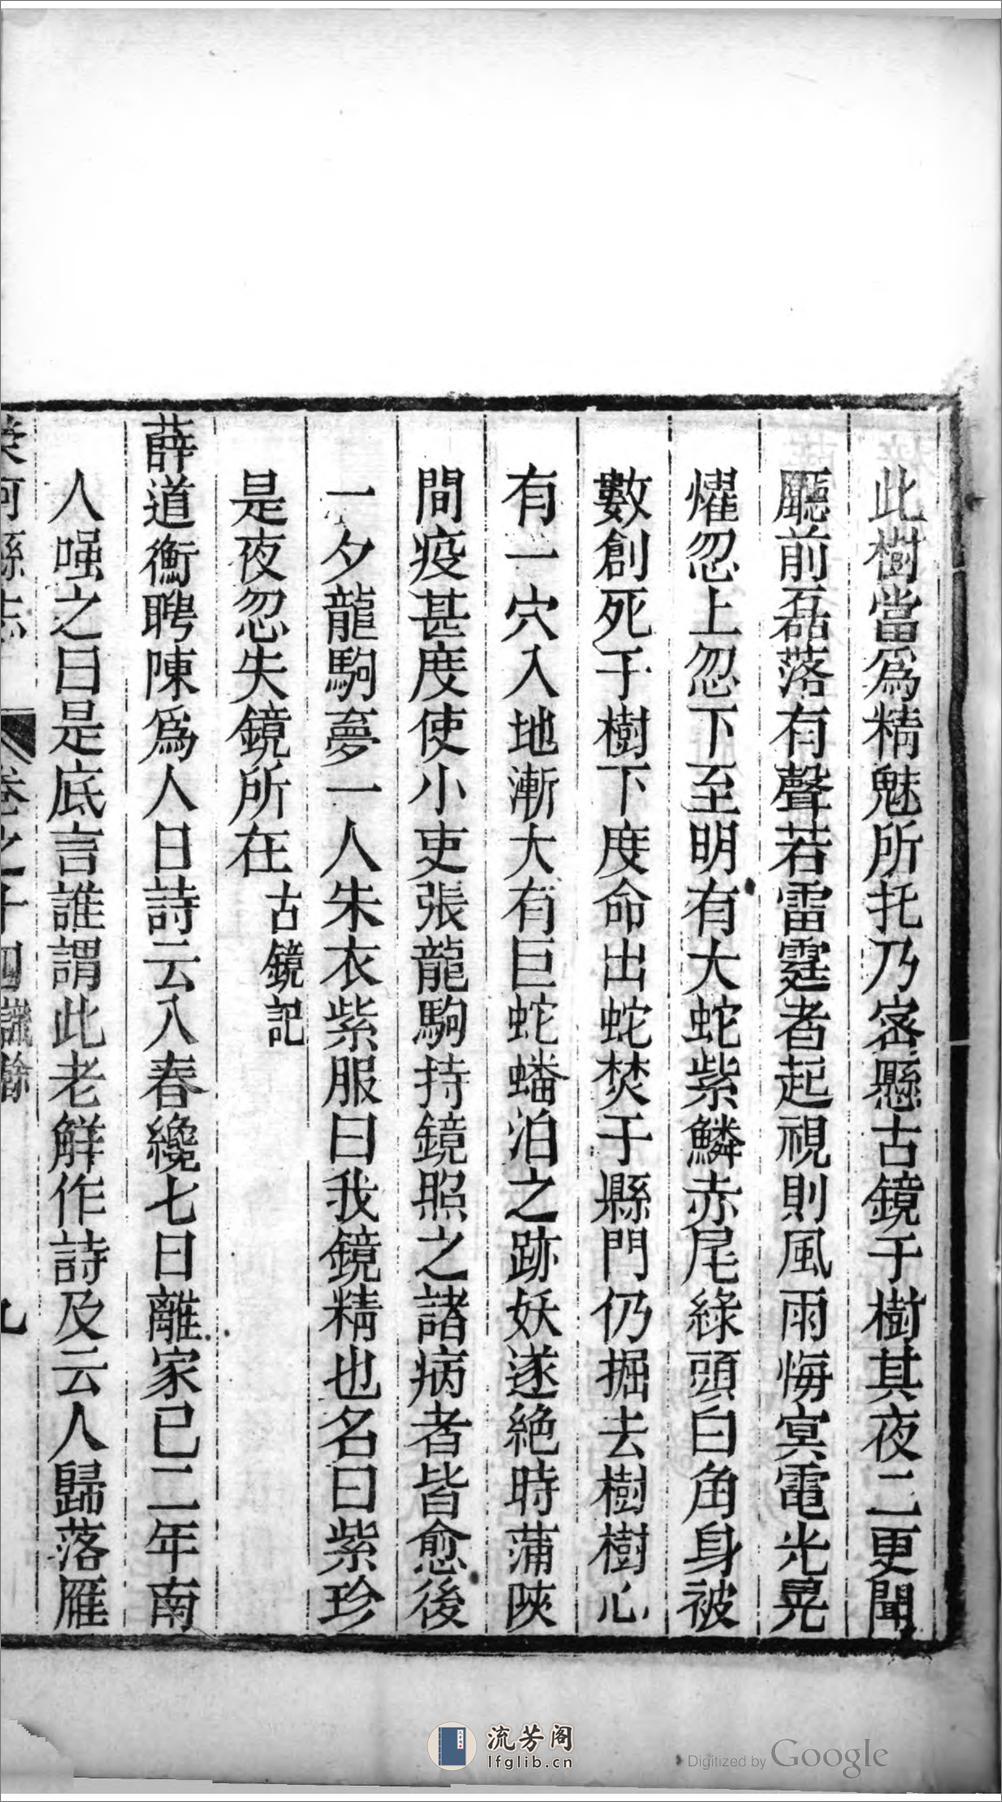 此樹當為精魅所托乃宻懸古鏡于樹其夜二更聞
廳前磊落有聲若雷霆者起視則風雨晦冥電光晃
燿忽上忽下至明有大蛇紫鱗赤尾綠頭白角身被
數創死于樹下度命出蛇焚于縣門仍掘去樹樹心
有一穴入地漸大有巨蛇蟠泊之跡妖遂絶時蒲陜
間疫甚度使小吏張龍駒持鏡照之諸病者皆愈後
一夕龍駒夢一人朱衣紫服曰我鏡精也名曰紫珍
是夜忽失鏡所在 古鏡記
薛道衡聘陳為人日詩云入春纔七日離家已二年南
人嗤之曰是底言誰謂此老解作詩及云人歸落雁
河縣志 卷之十四 讖餘 九
流芳阁
lfglib.cn
Digitized by Google